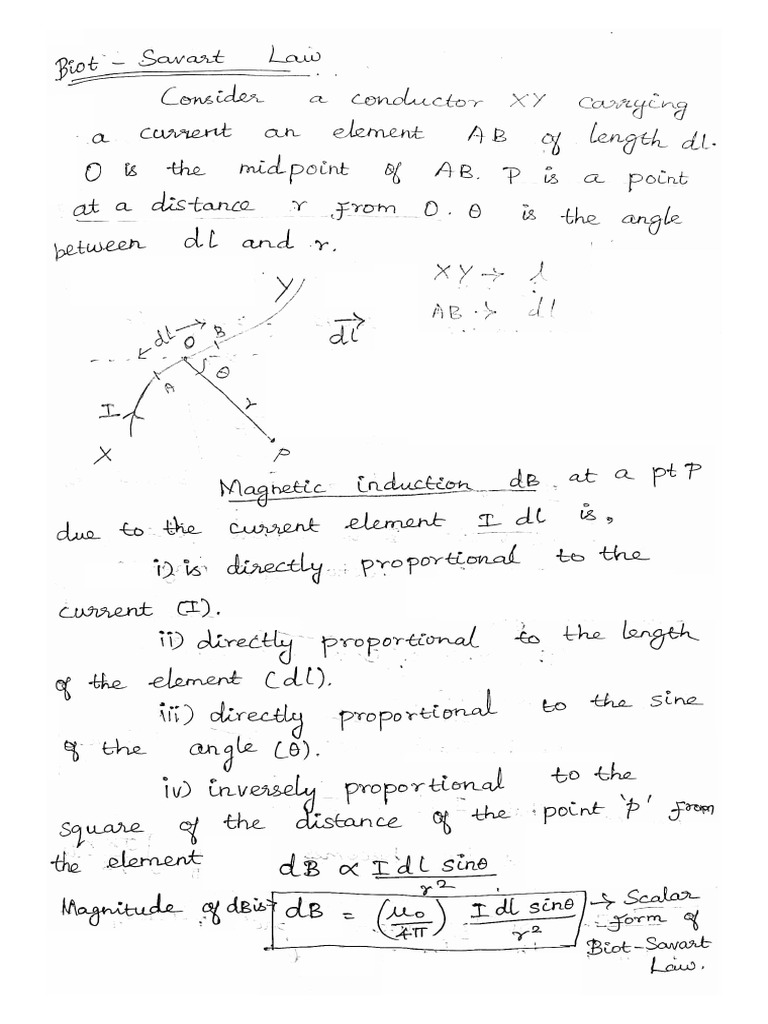 Biot - Savart Law
Consider a conductor XY carrying
a current an element AB of length dl.
O is the midpoint of AB. P is a point
at a distance r from O. θ is the angle
between dl and r.
XY → l
AB → dl
Y
dl
O
B
dl
θ
A
I
r
X
P
Magnetic induction dB at a pt P
due to the current element I dl is,
i) is directly proportional to the
current (I).
ii) directly proportional to the length
of the element (dl).
iii) directly proportional to the sine
of the angle (θ).
iv) inversely proportional to the
square of the distance of the point 'p' from
the element dB ∝ I dl sinθ / r²
Magnitude of dB is → dB = (μ₀/4π) I dl sinθ / r² → Scalar
form of
Biot-Savart
Law.